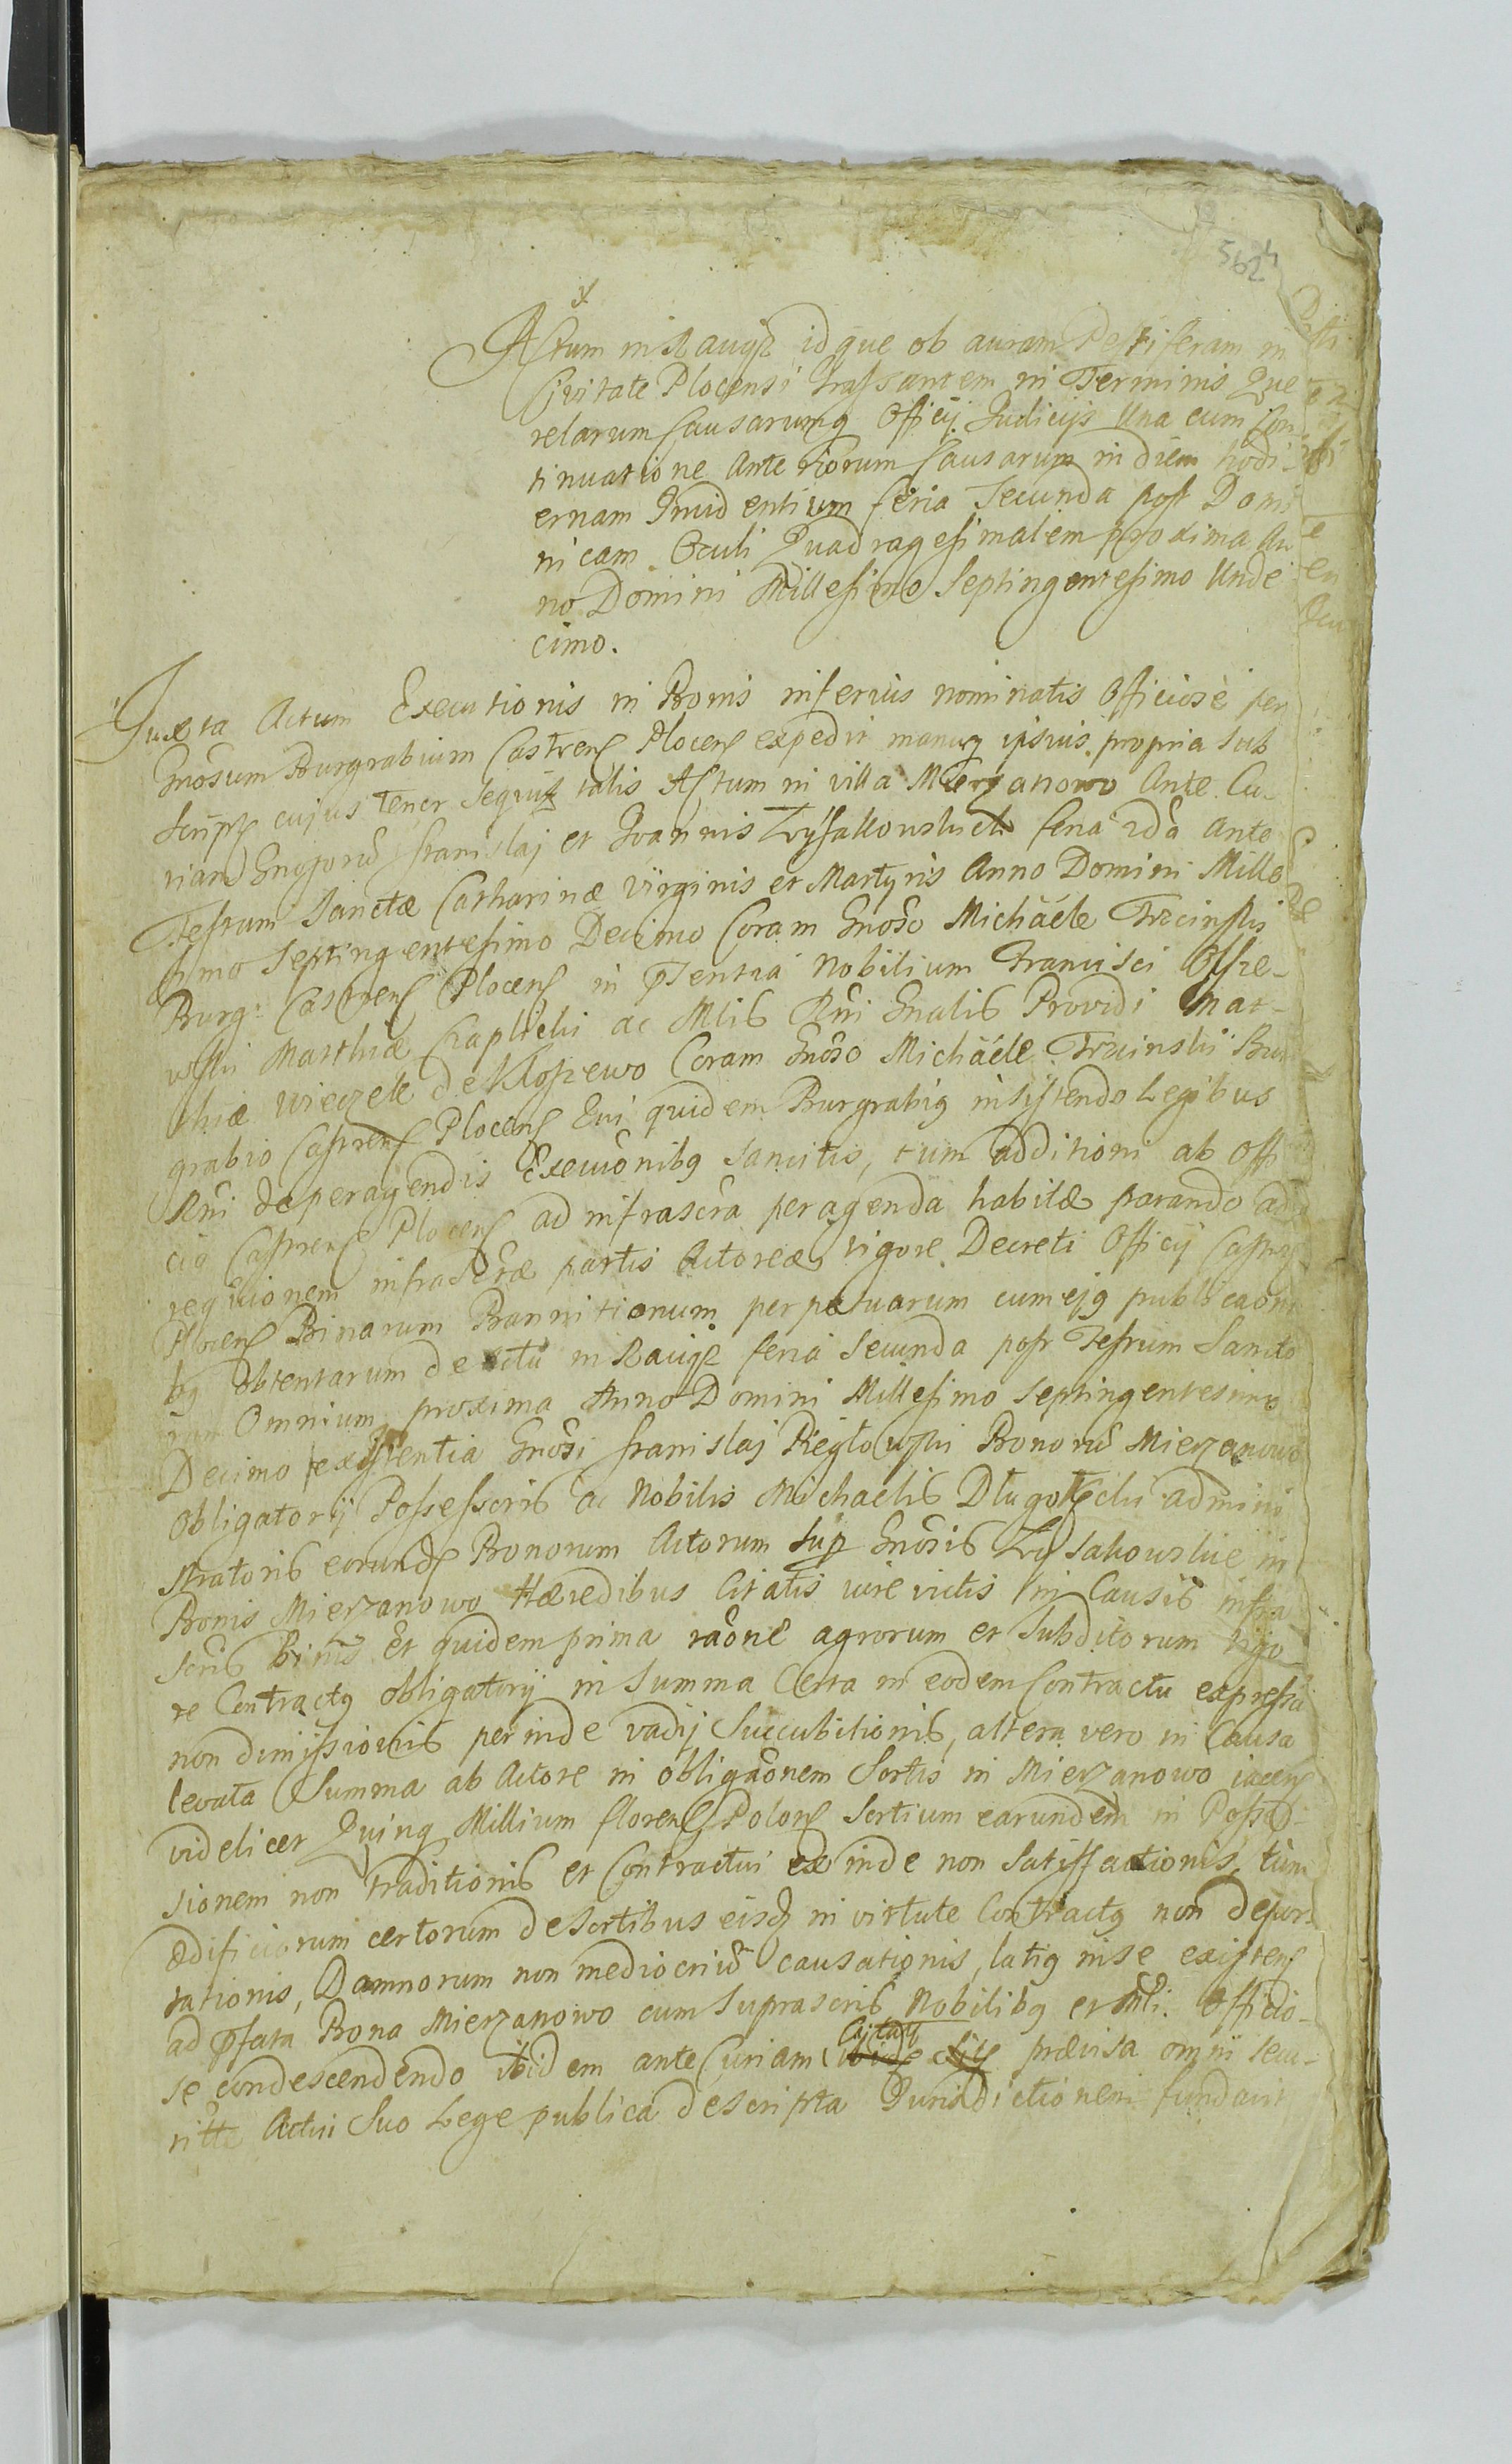 562
Actum in Raciąż idque ob auram Pestiferam in
Civitate Plocensi Grassantem in Terminis Que
relarum Causarumq Officij Judicijs Una cum Con
tinuatione Anteriorum Causarum in diem hodi
ernam Incidentium feria Secunda post Domi
nicam Oculi Quadragesimalem proxima An
no Domini Millesimo Septingentesimo Unde
cimo.
Juxta Actum Executionis in Bonis inferius nominatis Officiose per
Gnosum Burgrabium Castren Plocen expedit manuq ipsius propria Sub
script cujus tenor Sequit talis Actum in villa Mierzanowo Ante Cu-
riam Gnsorū Stanislai et Joannis Lyssakowskich feria 2da Ante
Festum Sanctæ Catharinæ Virginis et Martyris Anno Domini Mille
simo Septingentesimo Decimo Coram Gnoso Michaele Trzcinski
Burg: Castren Plocen in pntentia Nobilium Francisci Olsze-
wski Matthiæ Czaplicki ac Mtlis Rni Gnalis Providi Mat-
thiæ Wieczek de Kłoszewo Coram Gnoso Michaele Trzcinski Bur
grabio Castren Plocen Qui quidem Burgrabiq insistendo Legibus
Rni de peragendis Execuonibq Sancitis, tum additioni ab Offi
cio Castrense Plocen ad infrascra peragenda habitæ parando ad
requionem infrascræ partis Actoreæ vigore Decreti Officij Castren
Plocen Binarum Bannitionum perpetuarum cum ejq publicaoni
bq obtentarum de Actu in Raciąż feria Secunda post Festum Sancto
rum Omnium proxima Anno Domini Millesimo Septingentesimo
Decimo existentia Gnosi Stanislai Piegłowski Bonorū Mierzanowo
Obligatorij Possessoris ac Nobilis Michaelis Długołęcki admini
stratoris eorund Bonorum Actorum Sup Gnosis Lyssakowskie in
Bonis Mierzanowo Hæredibus Citatis iure victis in Causis infra
scris binis Et quidem prima raone agrorum et Subditorum vigo
re Contractq obligatorij in Summa Certa in eodem Contractu expressa
non dimissionis perinde vadij Succubitionis, altera vero in Causa
levata Summa ab Actore in obligaonem Sortis in Mierzanowo iacen
videlicet Quinq Millium floren Polon Sortium earundem in Posses-
sionem non traditionis et Contractui exinde non Satisfactionis, tum
ædificiorum certorum de Sortibus eisd in virtute Contractq non depor
tationis, Damnorum non mediocriū causationis, latiq in se existen
ad pfata Bona Mierzanowo cum Suprascris Nobilibq et Mtli Officio-
se condescendendo ibidem ante Curiam Citatq prævisa omni secu-
ritte Actui Suo Lege publica descripta Jurisdictionem fundavit